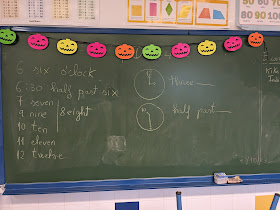 6 six o'clock
6:30 half past six
7 seven
8 eight
9 nine
10 ten
11 eleven
12 twelve
three
half past